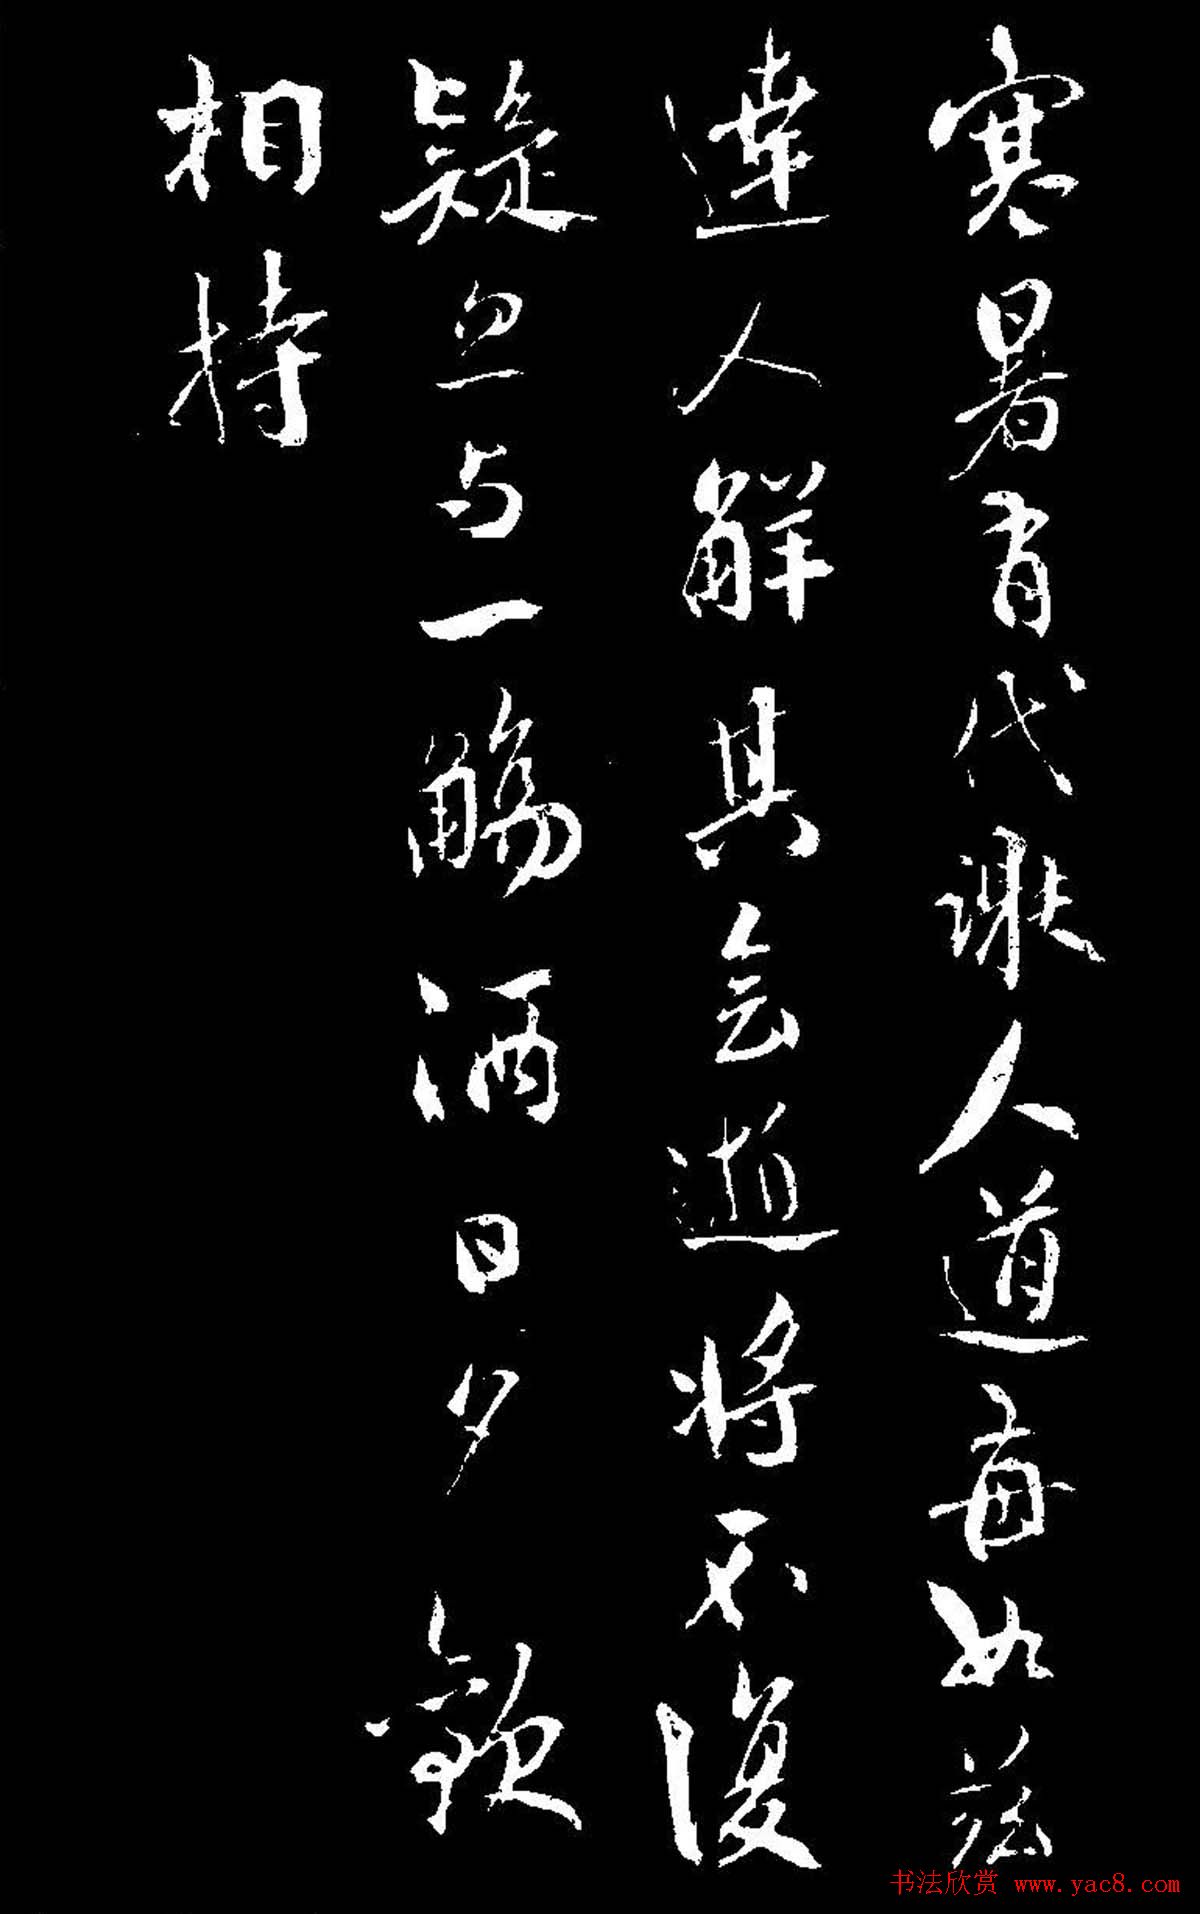 寒暑有代謝人道每如茲
達人解其会逝将不復
疑忽与一觴酒日夕歡
相持
书法欣赏 www.yac8.com